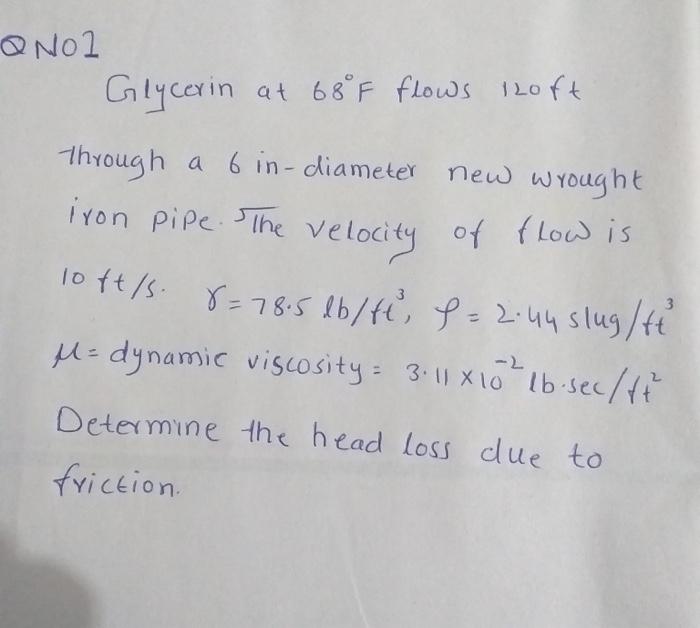 Q NO1
Glycerin at 68°F flows 120ft
Through a 6 in-diameter new wrought
iron pipe. The velocity of flow is
10 ft/s. γ = 78.5 lb/ft³, ρ = 2.44 slug/ft³
μ = dynamic viscosity = 3.11 × 10⁻² lb.sec/ft²
Determine the head loss due to
friction.